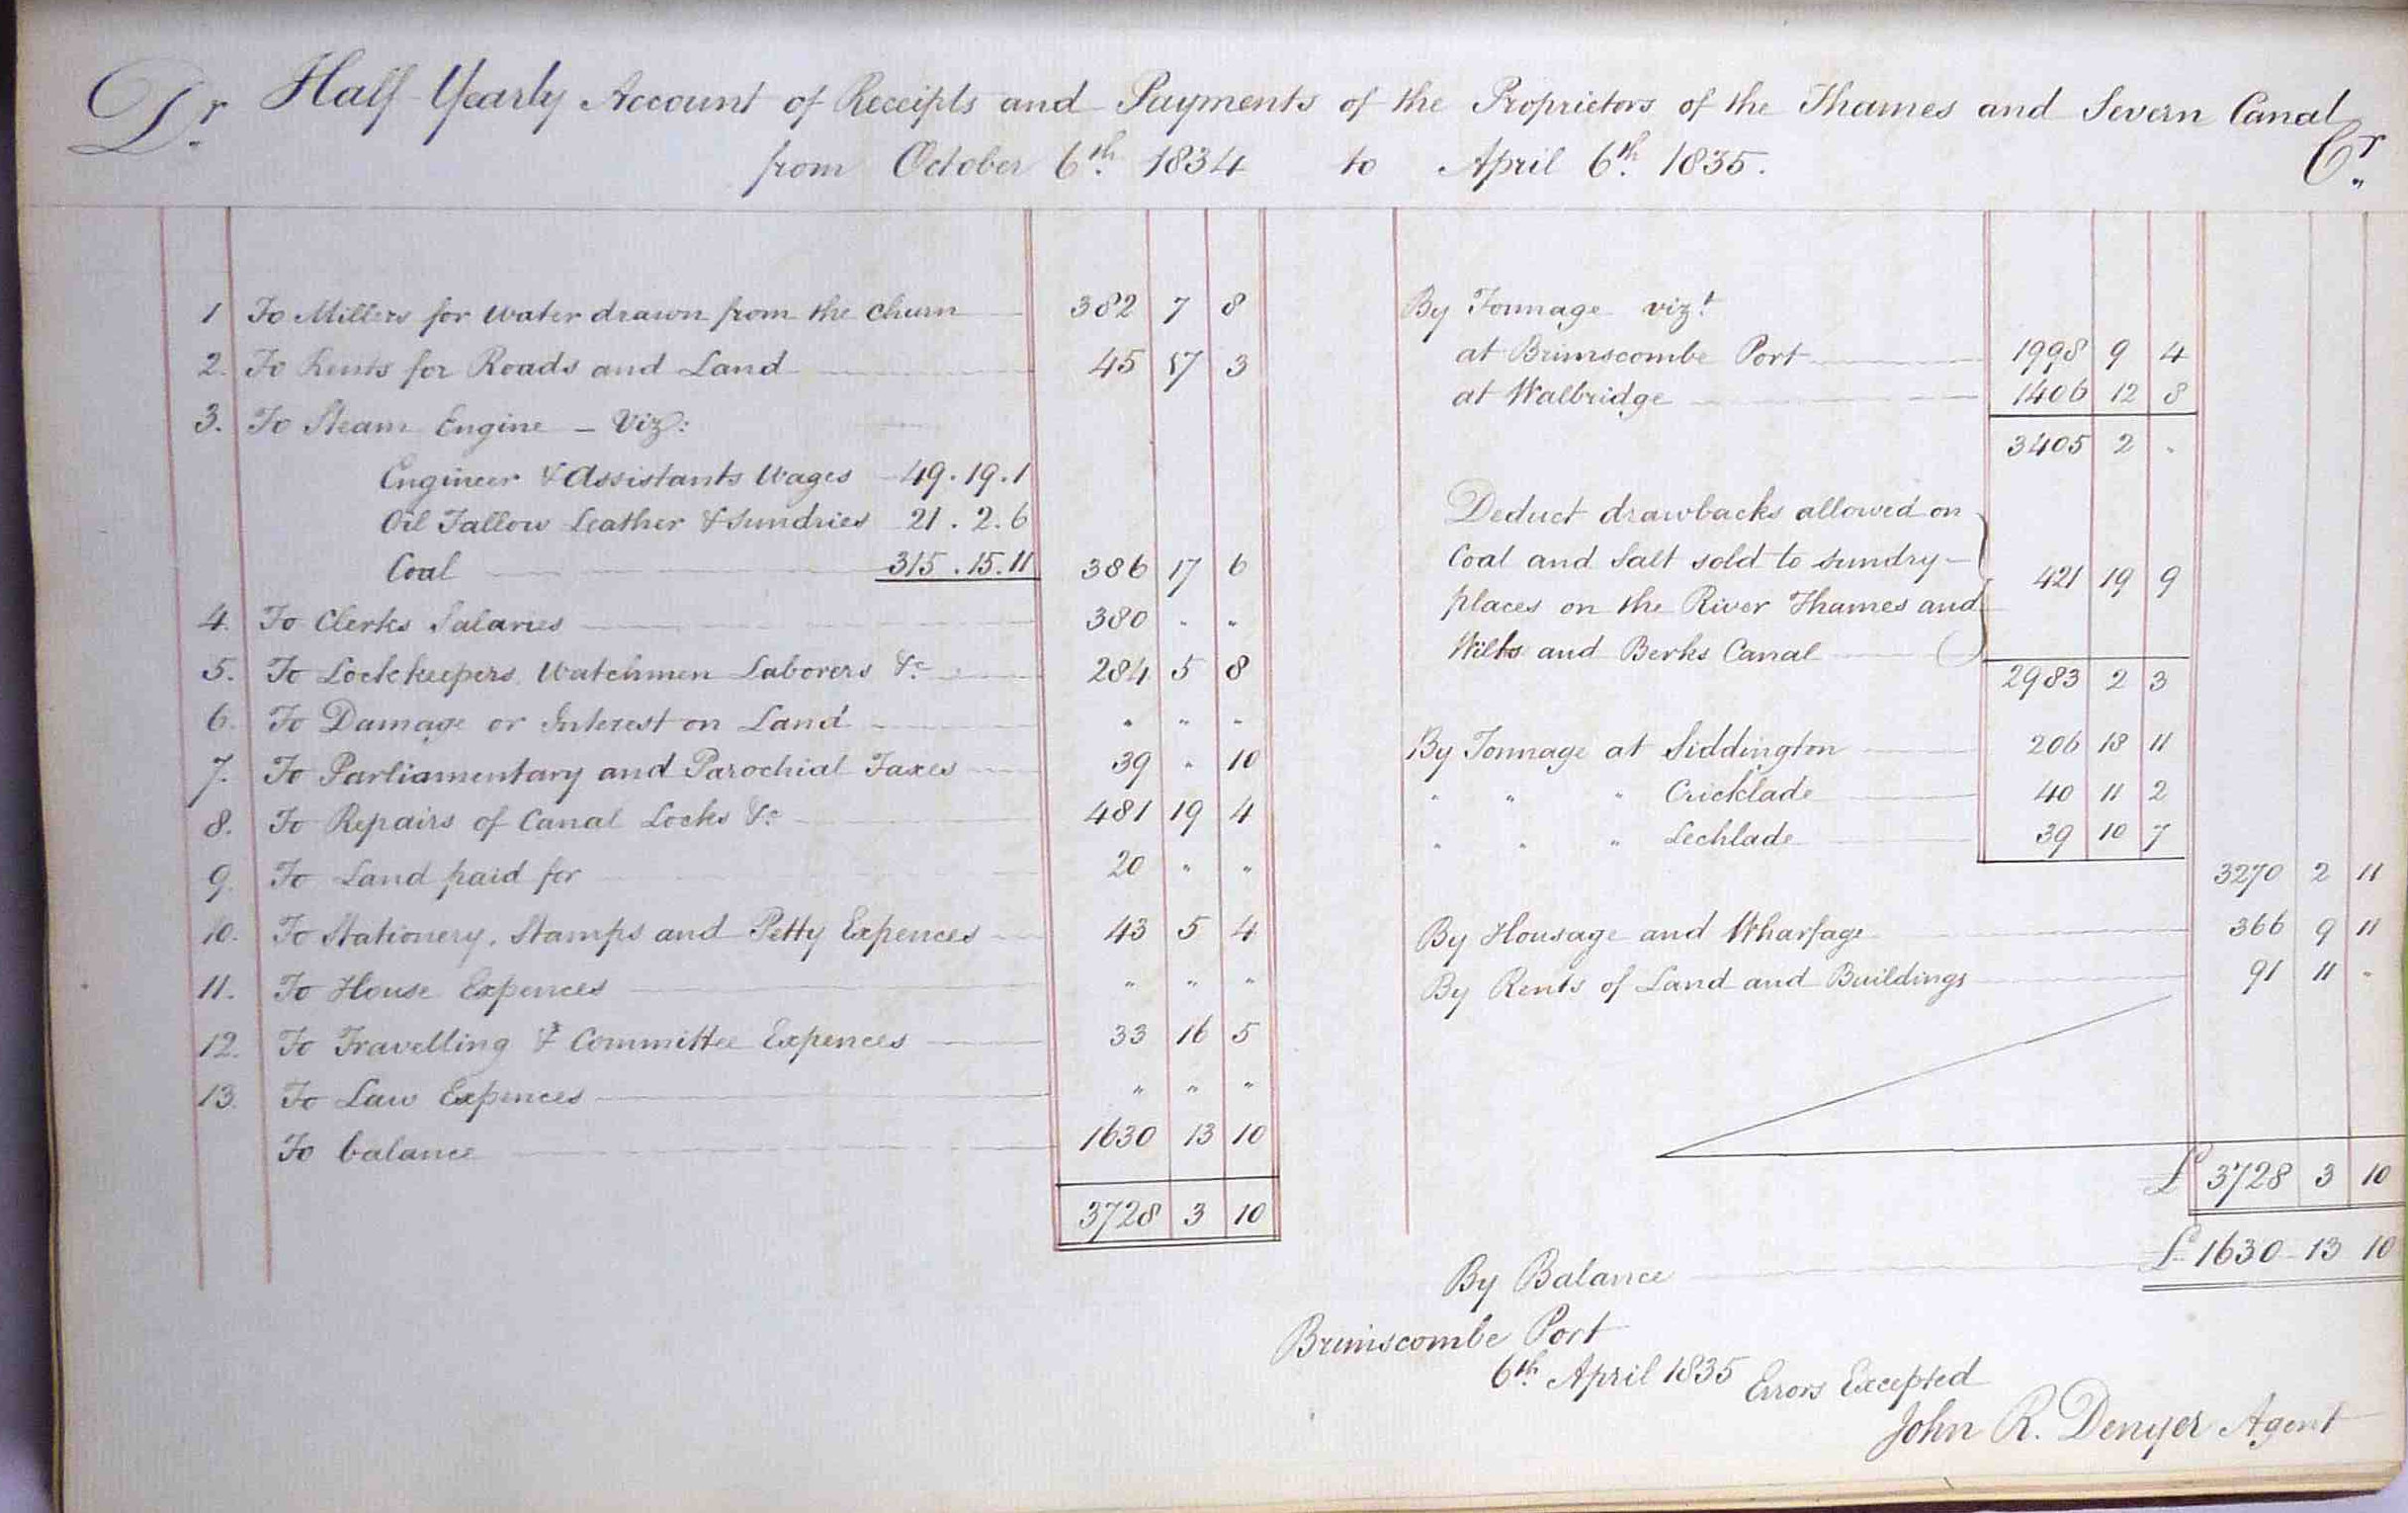 Dr. Half Yearly Account of Receipts and Payments of the Proprietors of the Thames and Severn Canal Cr.
from October 6th. 1834 to April 6th. 1835.
1 To Millers for water drawn from the Churn 382 7 8
2. To Rents for Roads and Land 45 17 3
3. To Steam Engine - Viz:
Engineer & Assistants Wages 49.19.1
Oil Tallow Leather & Sundries 21.2.6
Coal 315.15.11 386 17 6
4. To Clerks Salaries 380 " "
5. To Lockkeepers, Watchmen Laborers &c 284 5 8
6. To Damage or Interest on Land " " "
7. To Parliamentary and Parochial Taxes 39 " 10
8. To Repairs of Canal Locks &c 481 19 4
9. To Land paid for 20 " "
10. To Stationery, Stamps and Petty Expences 43 5 4
11. To House Expences " " "
12. To Travelling & Committee Expences 33 16 5
13. To Law Expences " " "
To balance 1630 13 10
3728 3 10
By Tonnage vizt
at Brimscombe Port 1998 9 4
at Walbridge 1406 12 8
3405 2 "
Deduct drawbacks allowed on
Coal and Salt sold to sundry
places on the River Thames and 421 19 9
Wilts and Berks Canal
2983 2 3
By Tonnage at Siddington 206 18 11
" " " Cricklade 40 11 2
" " " Lechlade 39 10 7
3270 2 11
By Housage and Wharfage 366 9 11
By Rents of Land and Buildings 91 11 "
£ 3728 3 10
By Balance £ 1630 13 10
Brimscombe Port
6th. April 1835 Errors Excepted
John R. Denyer Agent